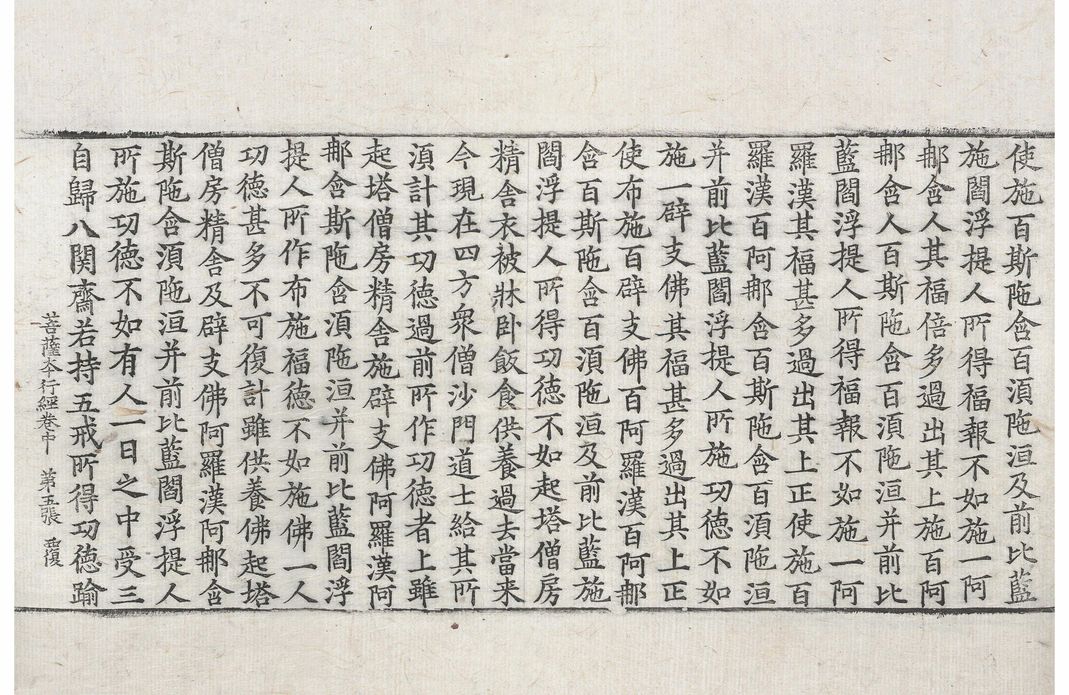 使施百斯陁含百湏陁洹及前比藍
施閻浮提人所得福報不如施一阿
那含人其福倍多過出其上施百阿
那含人百斯陁含百湏陁洹并前比
藍閻浮提人所得福報不如施一阿
羅漢其福甚多過出其上正使施百
羅漢百阿那含百斯陁含百湏陁洹
并前比藍閻浮提人所施功德不如
施一辟支佛其福甚多過出其上正
使布施百辟支佛百阿羅漢百阿那
含百斯陁含百湏陁洹及前比藍施
閻浮提人所得功德不如起塔僧房
精舍衣被牀卧飯食供養過去當来
今現在四方衆僧沙門道士給其所
湏計其功德過前所作功德者上雖
起塔僧房精舍施辟支佛阿羅漢阿
那含斯陁含湏陁洹并前比藍閻浮
提人所作布施福德不如施佛一人
功德甚多不可復計雖供養佛起塔
僧房精舍及辟支佛阿羅漢阿那含
斯陁含湏陁洹并前比藍閻浮提人
所施功德不如有人一日之中受三
自歸八関齋若持五戒所得功德踰
菩薩夲行經卷中 第五張 覆